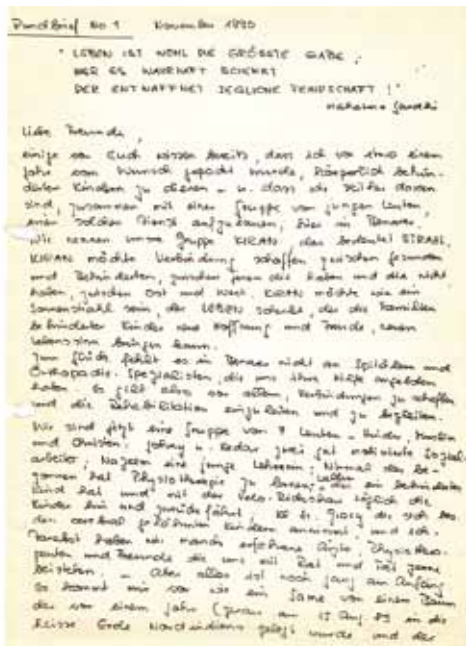 Rundbrief No 1 November 1990
" LEBEN IST WOHL DIE GRÖSSTE GABE ;
WER ES WAHRHAFT SCHENKT
DER ENTWAFFNET JEGLICHE FEINDSCHAFT ! "
Mahatma Gandhi
Liebe Freunde,
einige von Euch wissen bereits, dass ich vor etwa einem
Jahr vom Wunsch gepackt wurde, körperlich behin-
derten Kindern zu dienen - u. dass wir seither daran
sind, zusammen mit einer Gruppe von jungen Leuten,
einen solchen Dienst aufzubauen, hier in Benares.
Wir nennen unsere Gruppe KIRAN, das bedeutet STRAHL.
KIRAN möchte Verbindung schaffen zwischen gesunden
und Behinderten, zwischen jenen die haben und die nicht
haben, zwischen Ost und West. KIRAN möchte wie ein
Sonnenstrahl sein, der LEBEN schenkt, der die Familien
behinderter Kinder neue Hoffnung und Freude, neuen
Lebenssinn bringen kann.
Zum Glück fehlt es in Benares nicht an Spitälern und
Orthopädie-Spezialisten, die uns ihre Hilfe angeboten
haben. Es gilt also vor allem, Verbindungen zu schaffen
und die Rehabilitation einzuleiten und zu begleiten.
Wir sind jetzt eine Gruppe von 7 Leuten - Hindus, Moslem
und Christen: und Kedar zwei gut motivierte Sozial-
arbeiter; Najeem eine junge Lehrerin; Nirmal der be-
gonnen hat Physiotherapie zu lernen; der selber ein behindertes
Kind hat und mit der Velo-Rickshaw täglich die
Kinder hin und zurück führt, der sich bes.
der cerebral gelähmten Kindern annimmt, und ich.
Daneben haben wir manch erfahrene Ärzte, Physiothera-
peuten und Freunde die uns mit Rat und Tat gerne
beistehen. - Aber alles ist noch ganz am Anfang.
Es kommt mir vor wie ein Same von einem Baum
der vor einem Jahr (genau am 15 Aug 89 in die
heisse Erde Nordindiens gelegt wurde und der